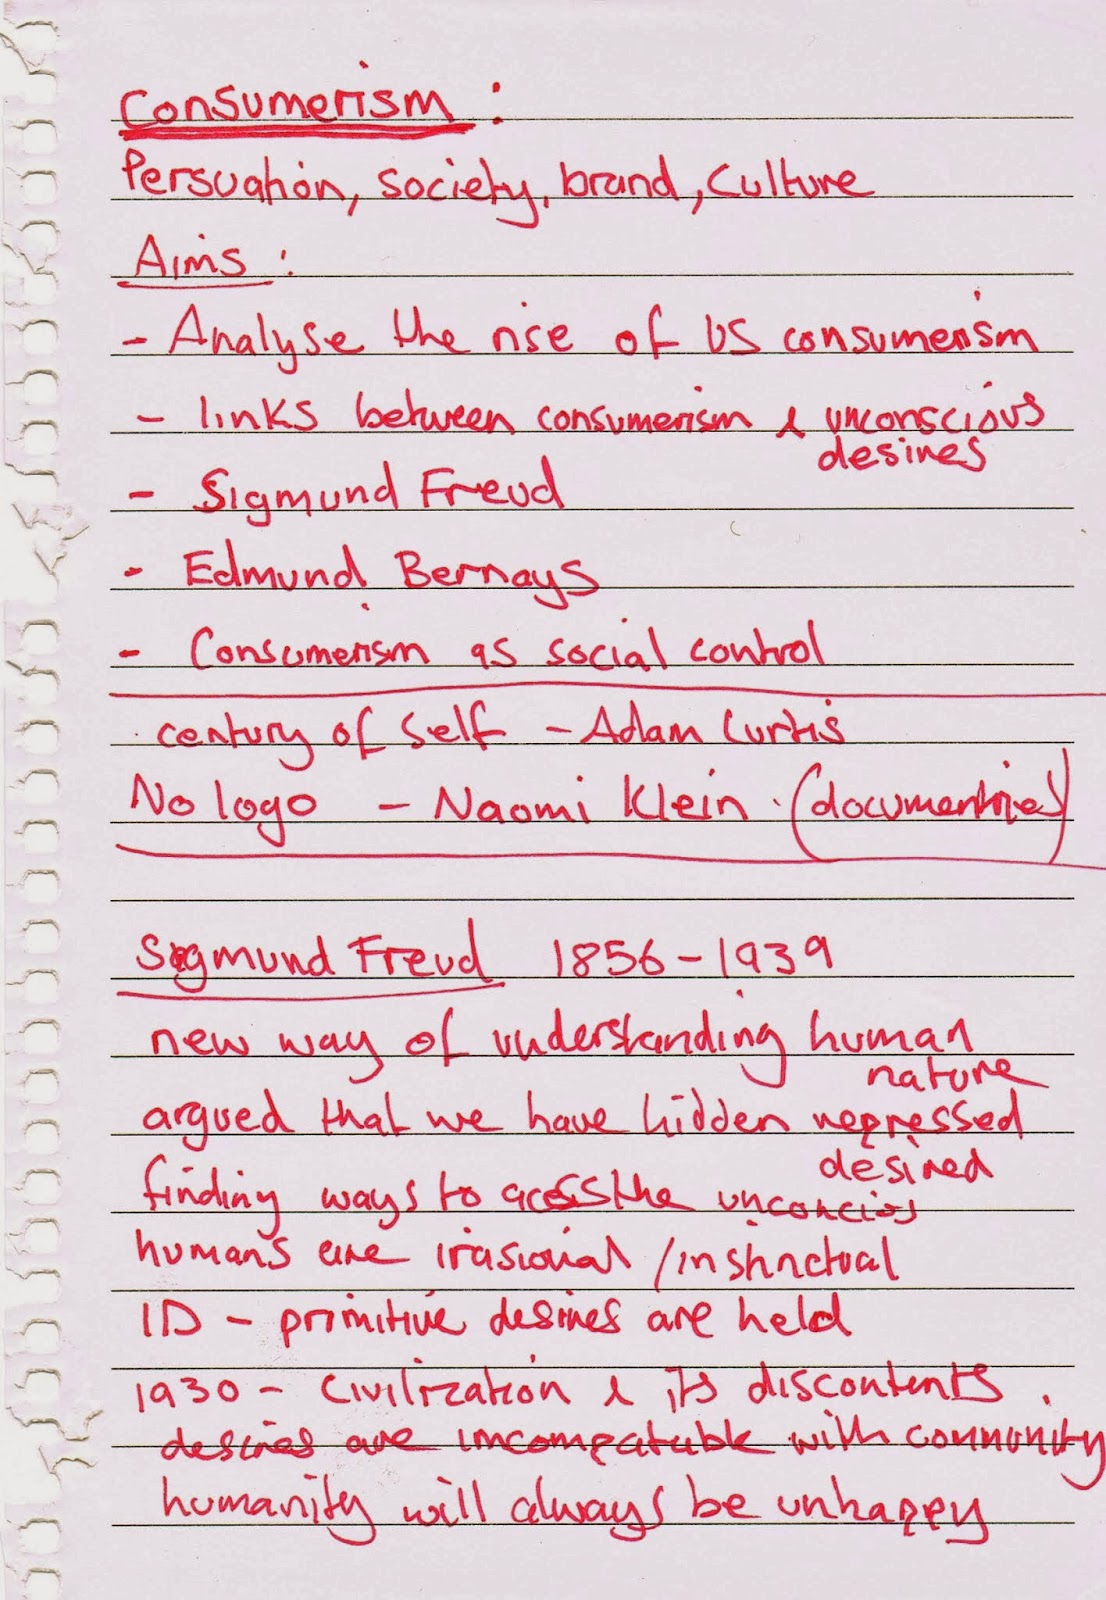 Consumerism :
Persuation, society, brand, culture
Aims :
- Analyse the rise of US consumerism
- links between consumerism & unconscious
desires
- Sigmund Freud
- Edmund Bernays
- Consumerism as social control
century of self - Adam Curtis
No logo - Naomi Klein. (documentrie)
Sigmund Freud 1856-1939
new way of understanding human
nature
argued that we have hidden repressed
desired
finding ways to acess the unconcious
humans are irasional / instinctual
ID - primitive desires are held
1930 - Civilization & its discontents.
desires are incompatable with community
humanity will always be unhappy